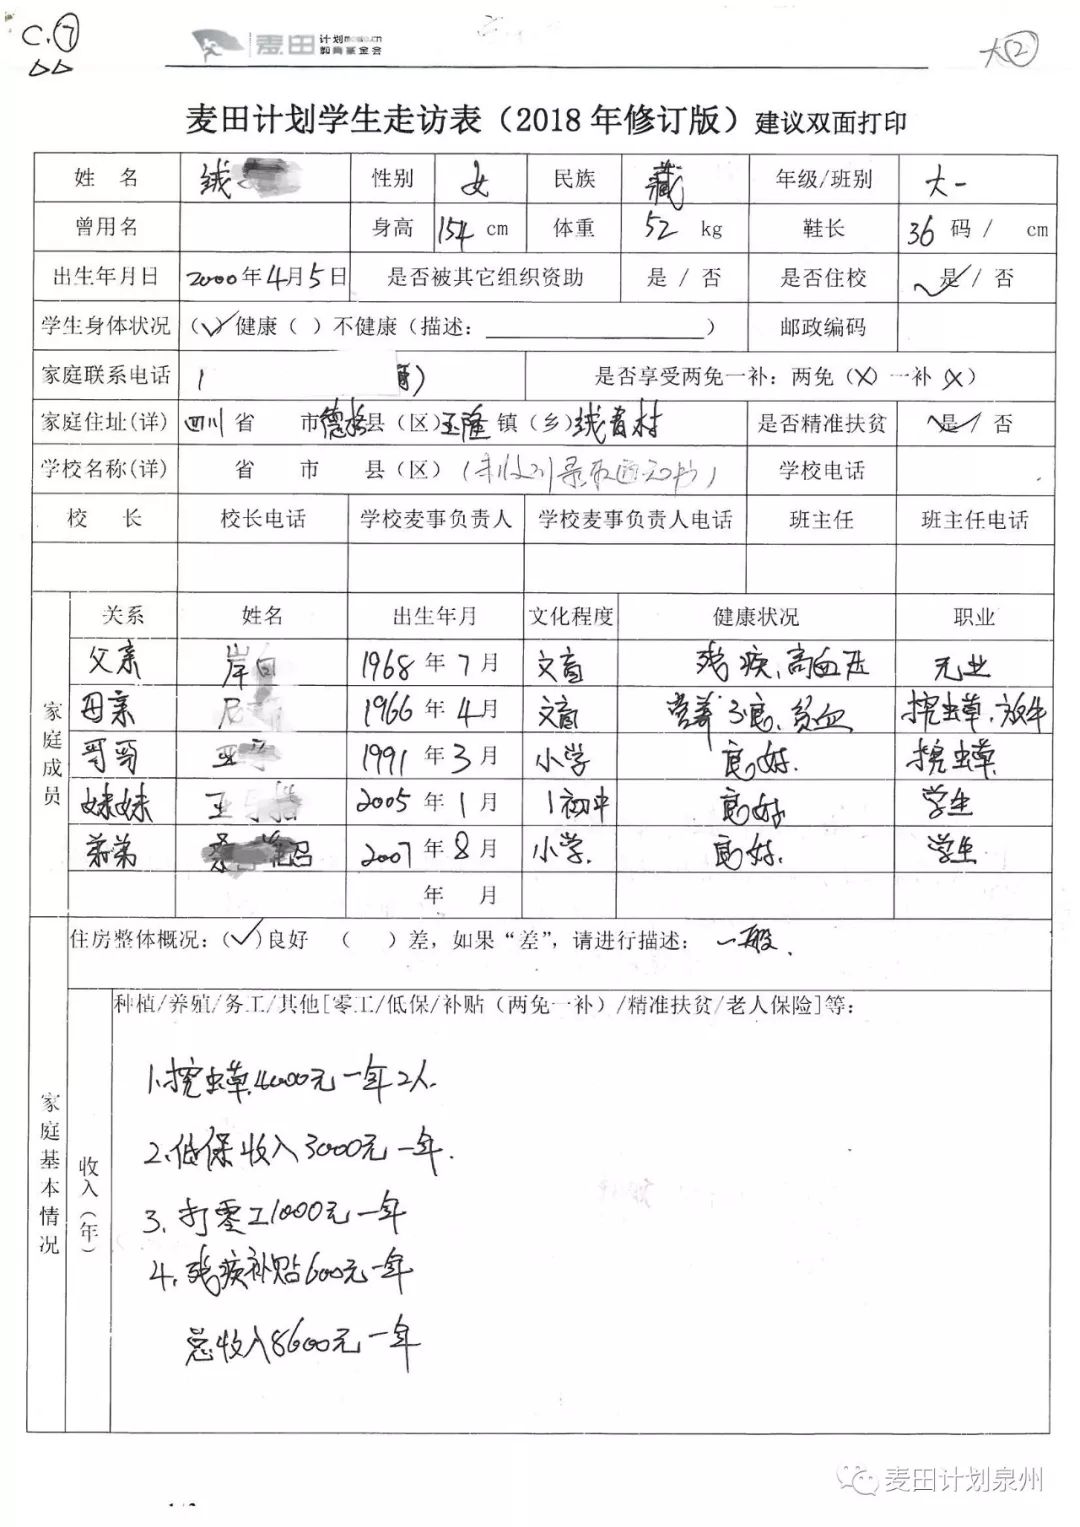 C.⑦
麦田 计划mowo.cn
教育基金会
大②
麦田计划学生走访表（2018 年修订版）建议双面打印
姓 名 绒 性别 女 民族 藏 年级/班别 大一
曾用名 身高 154 cm 体重 52 kg 鞋长 36 码 / cm
出生年月日 2000年4月5日 是否被其它组织资助 是 / 否 是否住校 是 / 否
学生身体状况 （✓）健康（ ）不健康（描述： ） 邮政编码
家庭联系电话 1 ） 是否享受两免一补：两免（X）一补（X）
家庭住址(详) 四川省 市德格县（区）玉隆镇（乡）绒青村 是否精准扶贫 是/ 否
学校名称(详) 省 市 县（区）（未收到录取通知书） 学校电话
校 长 校长电话 学校麦事负责人 学校麦事负责人电话 班主任 班主任电话
家庭成员
关系 姓名 出生年月 文化程度 健康状况 职业
父亲 岸 1968 年 7 月 文盲 残疾、高血压 无业
母亲 尼 1966 年 4 月 文盲 营养不良、贫血 挖虫草、放牛
哥哥 亚 1991 年 3 月 小学 良好. 挖虫草.
妹妹 亚 2005 年 1 月 初中 良好 学生
弟弟 桑 2007 年 8 月 小学. 良好. 学生
年 月
家庭基本情况
住房整体概况：（✓）良好 （ ）差，如果“差”，请进行描述： 一般.
收入（年）
种植/养殖/务工/其他[零工/低保/补贴（两免一补）/精准扶贫/老人保险]等：
1、挖虫草.4000元一年2人.
2、低保收入3000元一年.
3、打零工1000元一年
4、残疾补贴600元一年
总收入8600元一年
麦田计划泉州